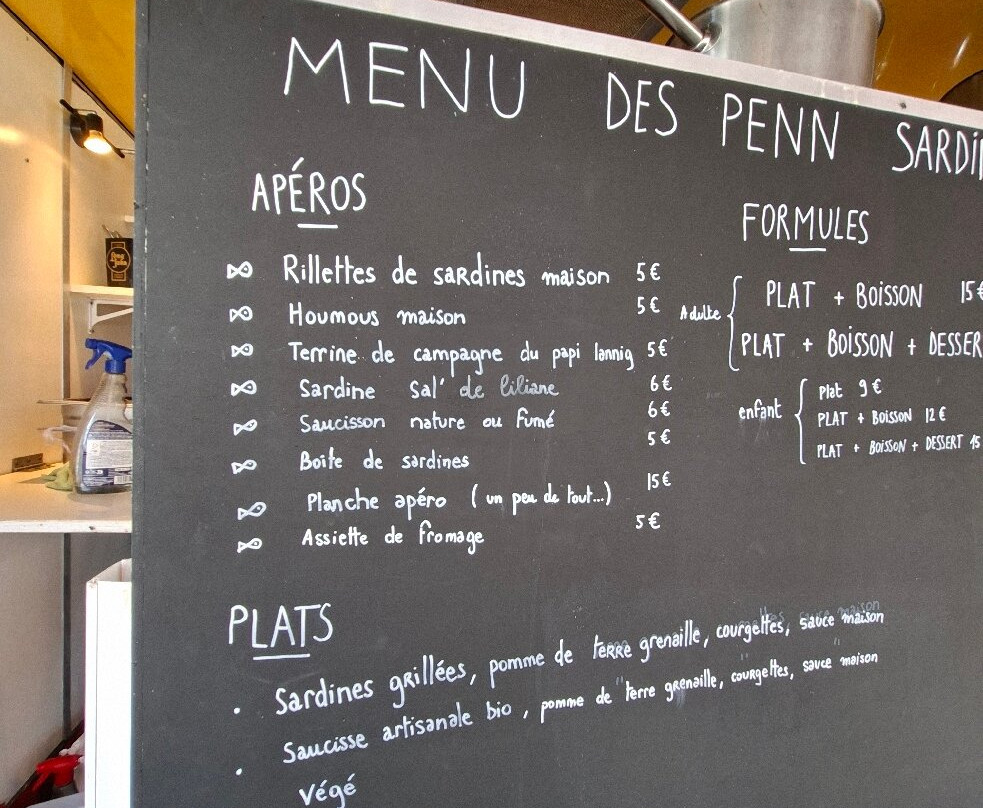 MENU DES PENN SARDIN
APÉROS
Rillettes de sardines maison 5€
Houmous maison 5€
Terrine de campagne du papi lannig 5€
Sardine Sal' de liliane 6€
Saucisson nature ou fumé 6€
Boîte de sardines 5€
Planche apéro (un peu de tout...) 15€
Assiette de fromage 5€
FORMULES
Adulte
PLAT + BOISSON 15€
PLAT + BOISSON + DESSER
enfant
Plat 9€
PLAT + BOISSON 12€
PLAT + BOISSON + DESSERT 15
PLATS
. Sardines grillées, pomme de terre grenaille, courgettes, sauce maison
. Saucisse artisanale bio, pomme de terre grenaille, courgettes, sauce maison
Végé